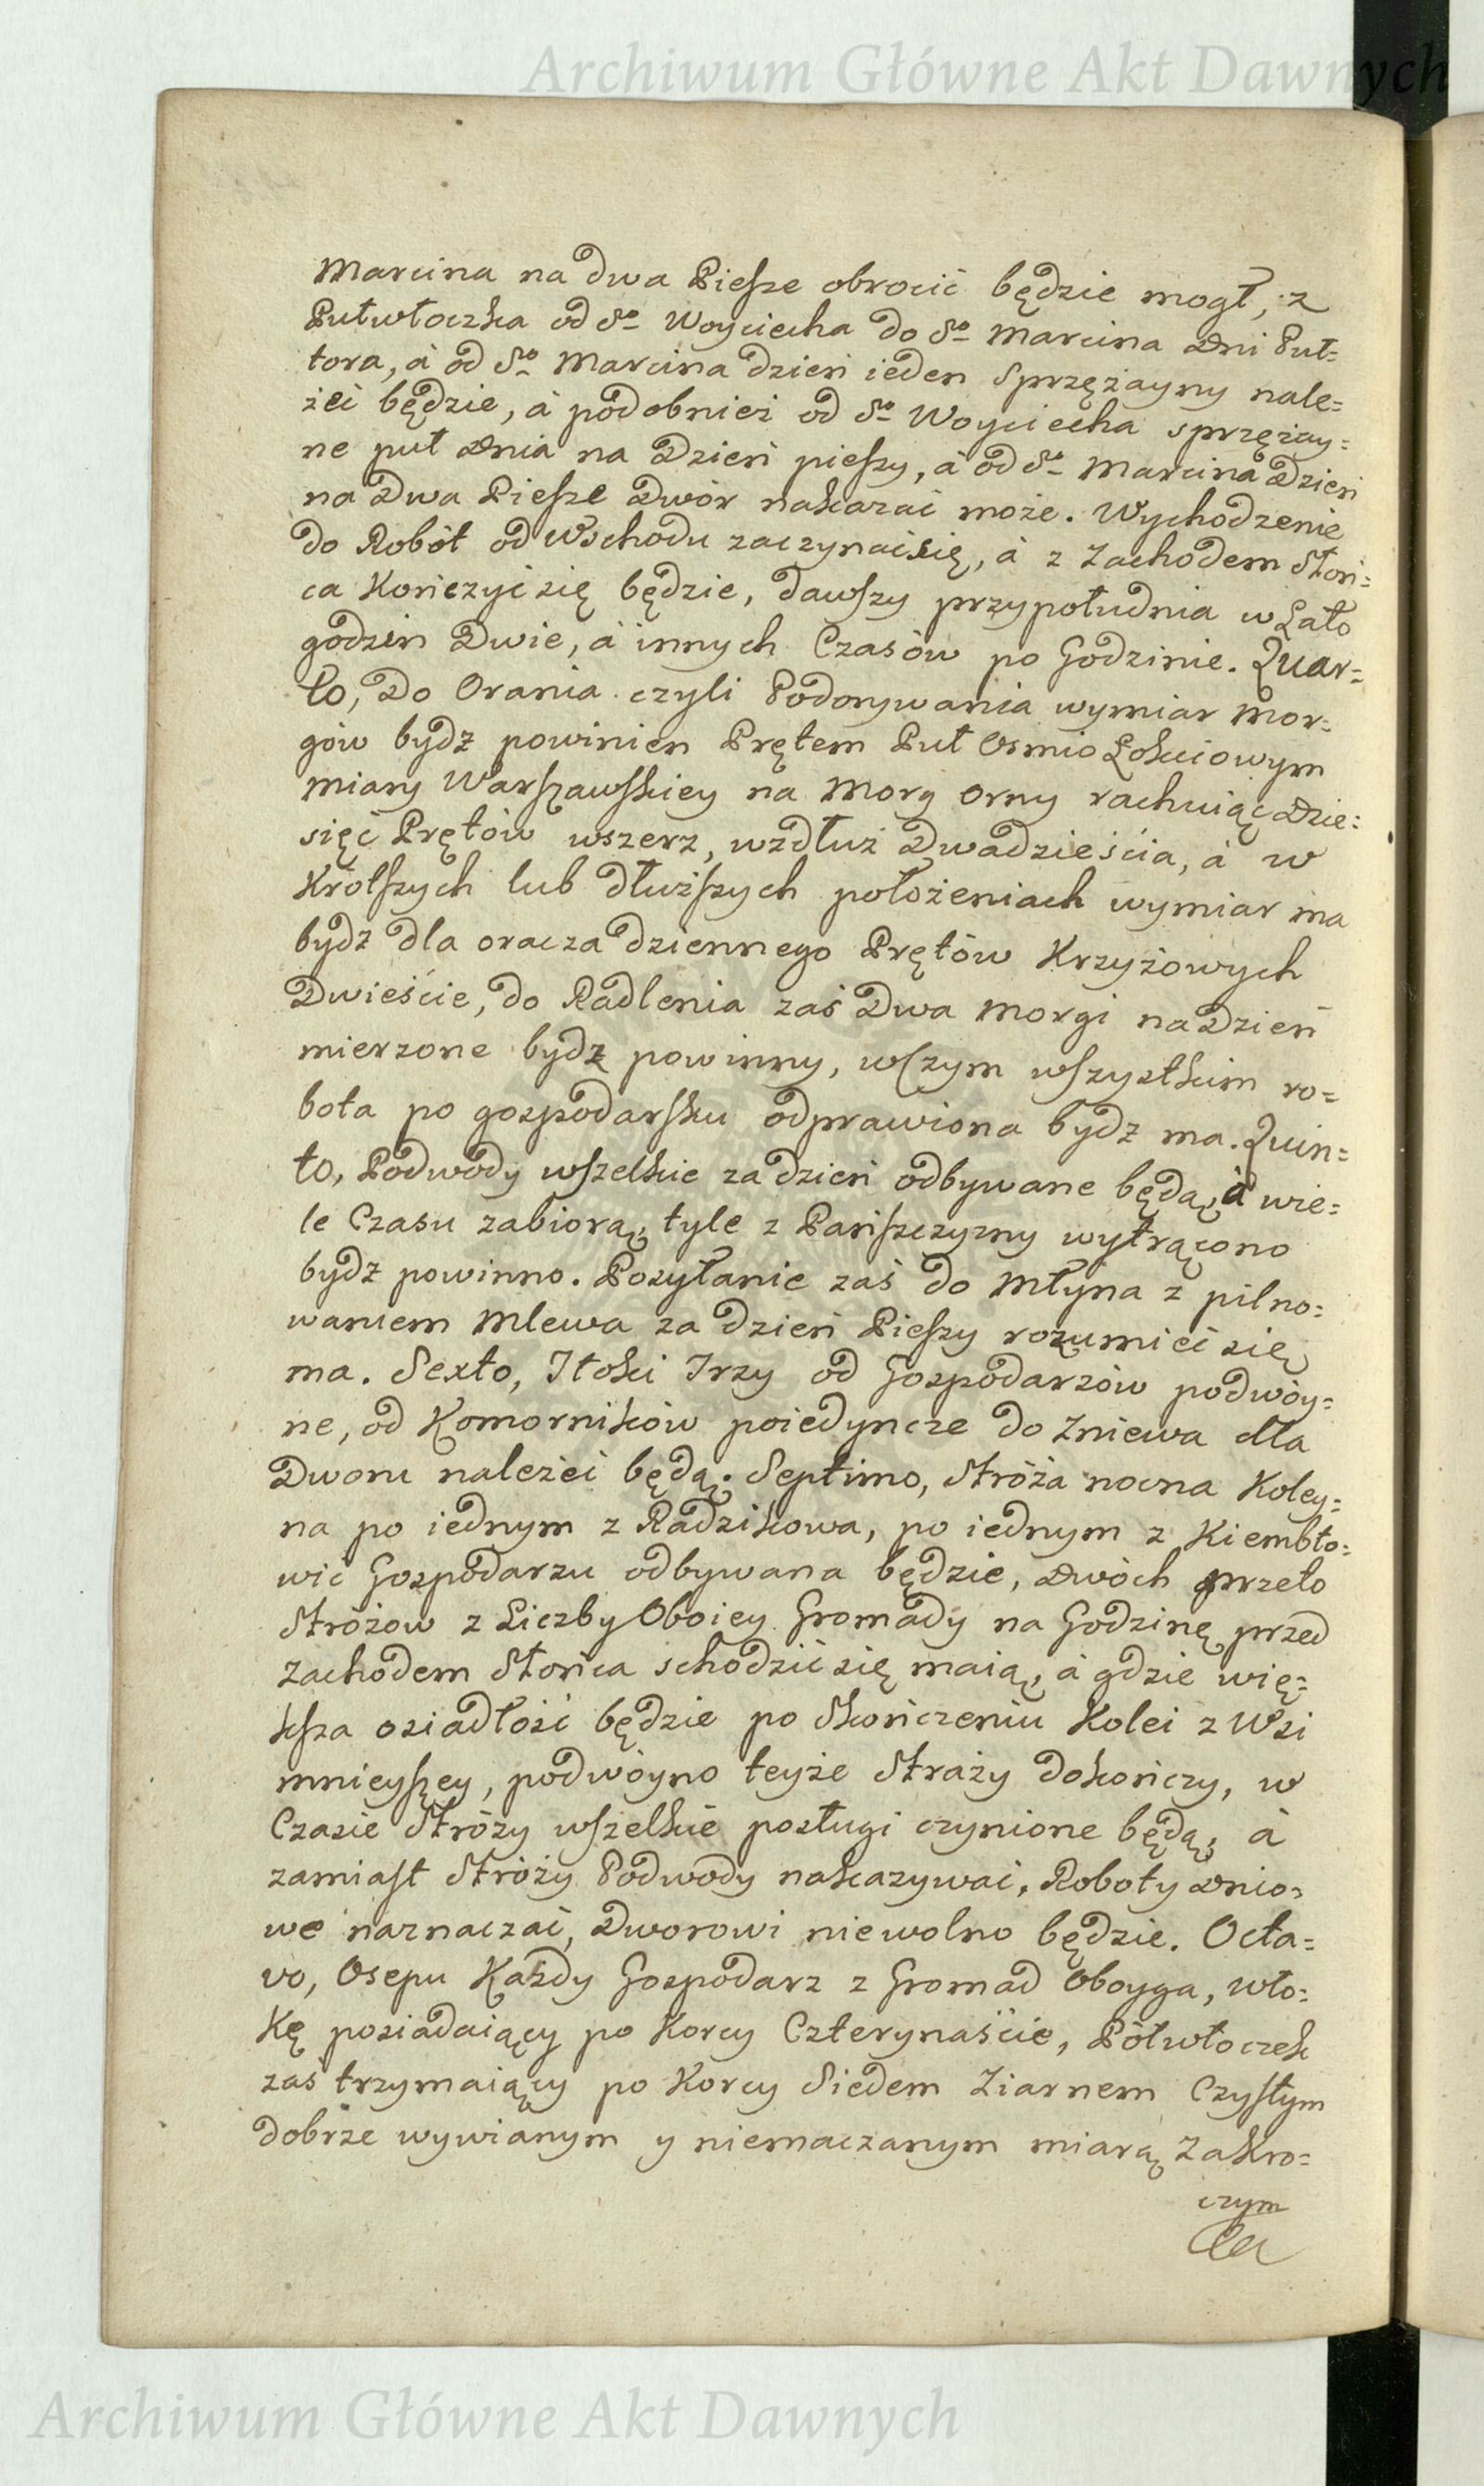 Archiwum Główne Akt Dawnych
Marcina na dwa Piesze obrocić będzie mogł, z
Pułwłoczka od Sº Woyciecha do Sº Marcina Dni Puł=
tora, á od Sº Marcina dzień ieden Sprzężayny nale=
żeć będzie, á podobnież od Sº Woyciecha sprzężay=
ne puł Dnia na Dzień pieszy, á od Sº Marcina Dzień
na Dwa Piesze Dwór nakazać może. Wychodzenie
do Robót od Wschodu zaczynać się, á z Zachodem Słoń=
ca Kończyć się będzie, dawszy przypołudnia w Lato
godzin Dwie, á innych Czasów po Godzinie. Quar=
to, Do Orania czyli Podorywania wymiar Mor=
gów bydź powinien Prętem Puł Osmio Łokciowym
miary Warszawskiey na Morg Orny rachuiąc Dzie=
sięć Prętów wszerz, wzdłuż Dwadzieścia, á w
Krotszych lub dłuższych położeniach wymiar ma
bydź dla oracza dziennego Prętów Krzyżowych
Dwieście, do Radlenia zaś Dwa Morgi na Dzień
mierzone bydź powinny, w czym wszystkim ro=
bota po gospodarsku odprawiona bydź ma. Quin=
to, Podwody wszelkie za dzień odbywane będą, á wie=
le Czasu zabiorą, tyle z Pańszczyzny wytrącono
bydź powinno. Posyłanie zaś do Młyna z pilno=
waniem Mlewa za dzień Pieszy rozumieć się
ma. Sexto, Tłoki Trzy od Gospodarzów podwóy=
ne, od Komorników poiedyncze do Zniewa dla
Dworu należeć będą. Septimo, Stróża nocna Koley=
na po iednym z Radzikowa, po iednym z Kiembło=
wic Gospodarzu odbywana będzie, Dwóch przeto
Stróżow z Liczby Oboiey Gromady na Godzinę przed
Zachodem Słońca schodzić się maią, á gdzie wię=
ksza osiadłość będzie po Skończeniu Kolei z Wsi
mnieyszey, podwóyno teyże Straży dokończy, w
Czasie Stróży wszelkie posługi czynione będą, á
zamiast Stróży Podwody nakazywać, Roboty Dnio=
we naznaczać, Dworowi niewolno będzie. Octa=
vo, Osepu Każdy Gospodarz z Gromad Oboyga, Wło=
Kę posiadaiący po Korcy Czterynaście, Półwłoczek
zaś trzymaiący po Korcy Siedem Ziarnem Czystym
dobrze wywianym y niemaczanym miarą Zakro=
czym
Archiwum Główne Akt Dawnych